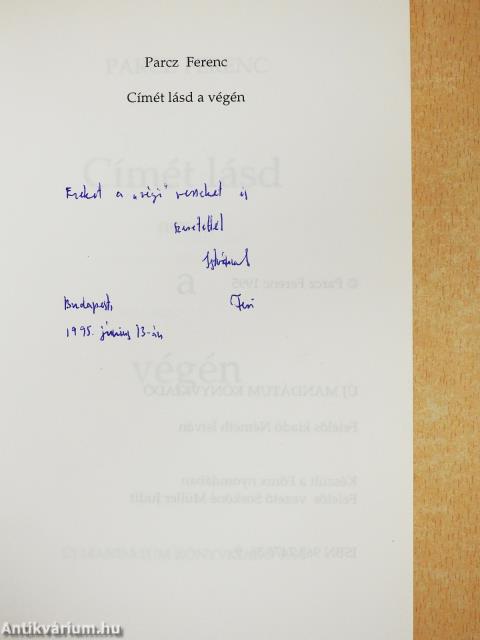 Parcz Ferenc
Címét lásd a végén
Ezeket a „régi” verseket is
szeretettel
Istvánnak
Budapest, Feri
1995. június 13-án
© Parcz Ferenc 1995
ÚJ MANDÁTUM KÖNYVKIADÓ
Felelős kiadó Németh István
Készült a Fónix nyomdában
Felelős vezető Szekóné Müller Judit
Antikvárium.hu